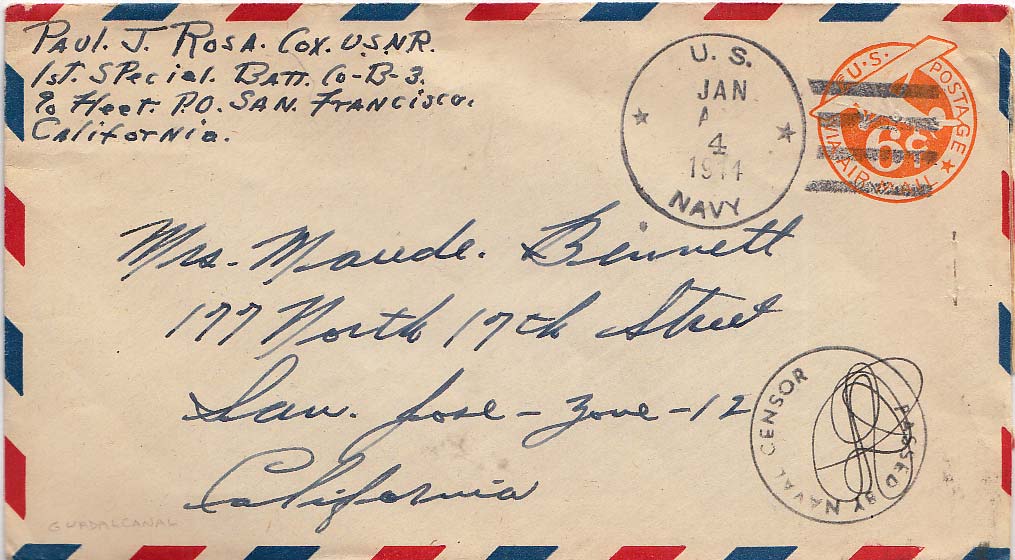 PAUL. J. ROSA. COX. U.S.N.R.
1st. SPecial. BATT. Co-B-3.
℅ Fleet. P.O. SAN. Francisco.
California.
U. S.
JAN
4
1944
NAVY
U.S. POSTAGE
6¢
VIA AIR MAIL
Mrs. Maude. Bennett
177 North 17th Street
San. Jose - Zone - 12
California
PASSED BY NAVAL CENSOR
GUADALCANAL